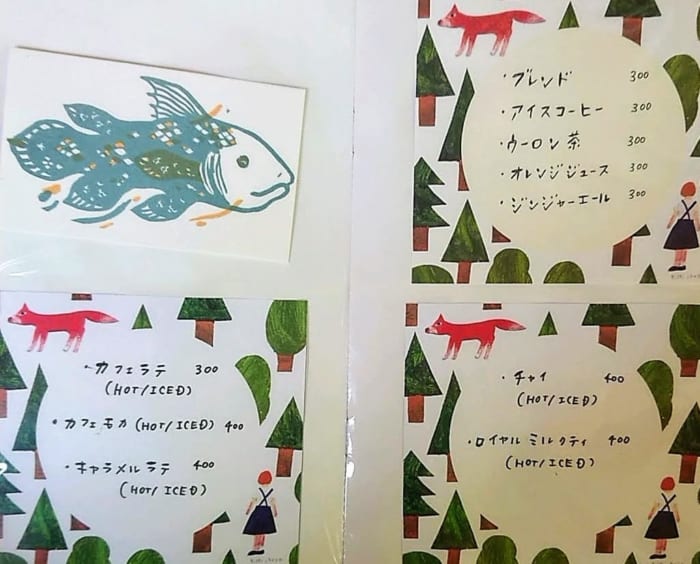 ・ブレンド 300
・アイスコーヒー 300
・ウーロン茶 300
・オレンジジュース 300
・ジンジャーエール 300
・カフェラテ 300
(HOT/ICED)
・カフェモカ (HOT/ICED) 400
・キャラメルラテ 400
(HOT/ICED)
・チャイ 400
(HOT/ICED)
・ロイヤルミルクティ 400
(HOT/ICED)